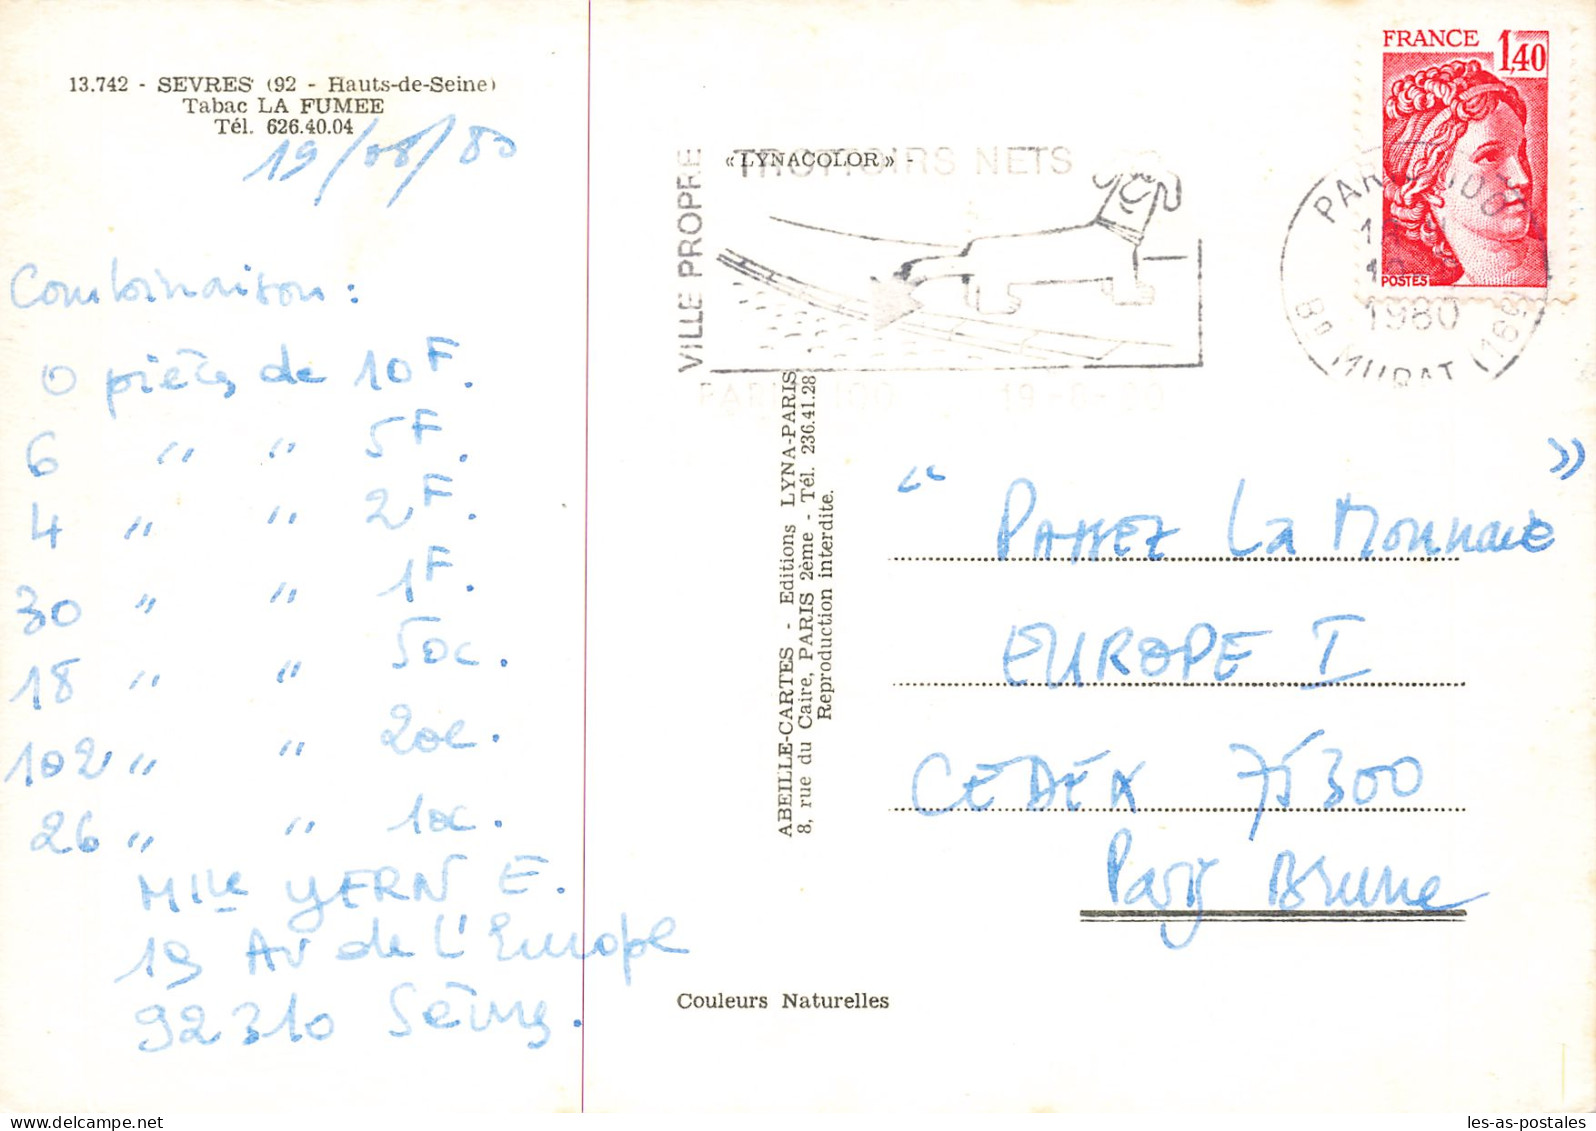 13.742 - SEVRES (92 - Hauts-de-Seine)
Tabac LA FUMEE
Tél. 626.40.04
19/08/80
Combinaison :
0 pièces de 10F.
6 " " 5F.
4 " " 2F.
30 " " 1F.
18 " " 50c.
102 " " 20c.
26 " " 10c.
Mlle YERN E.
19 Av de L'Europe
92310 Sèvres.
FRANCE 1,40
POSTES
« LYNACOLOR » -
VILLE PROPRE
TROTTOIRS NETS
PARIS
1980
Bd MURAT (16e)
ABEILLE-CARTES - Editions LYNA-PARIS
8, rue du Caire, PARIS 2ème - Tél. 236.41.28
Reproduction interdite.
" PASSEZ La Monnaie "
EUROPE I
CEDEX 75300
Paris Brune
Couleurs Naturelles
les-as-postales